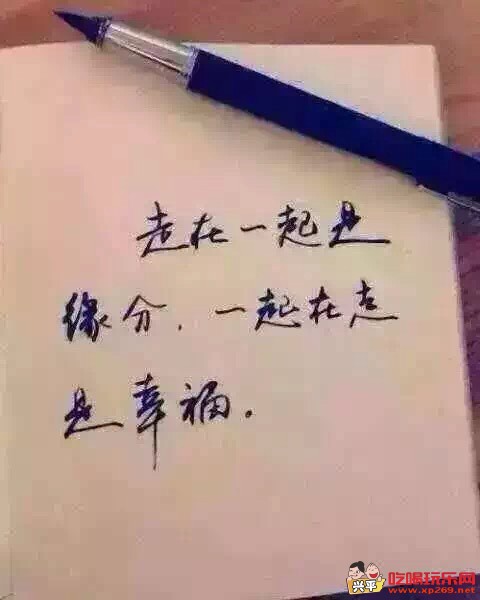 走在一起是
缘分，一起在走
是幸福。
兴平
吃喝玩乐网
www.xp269.net